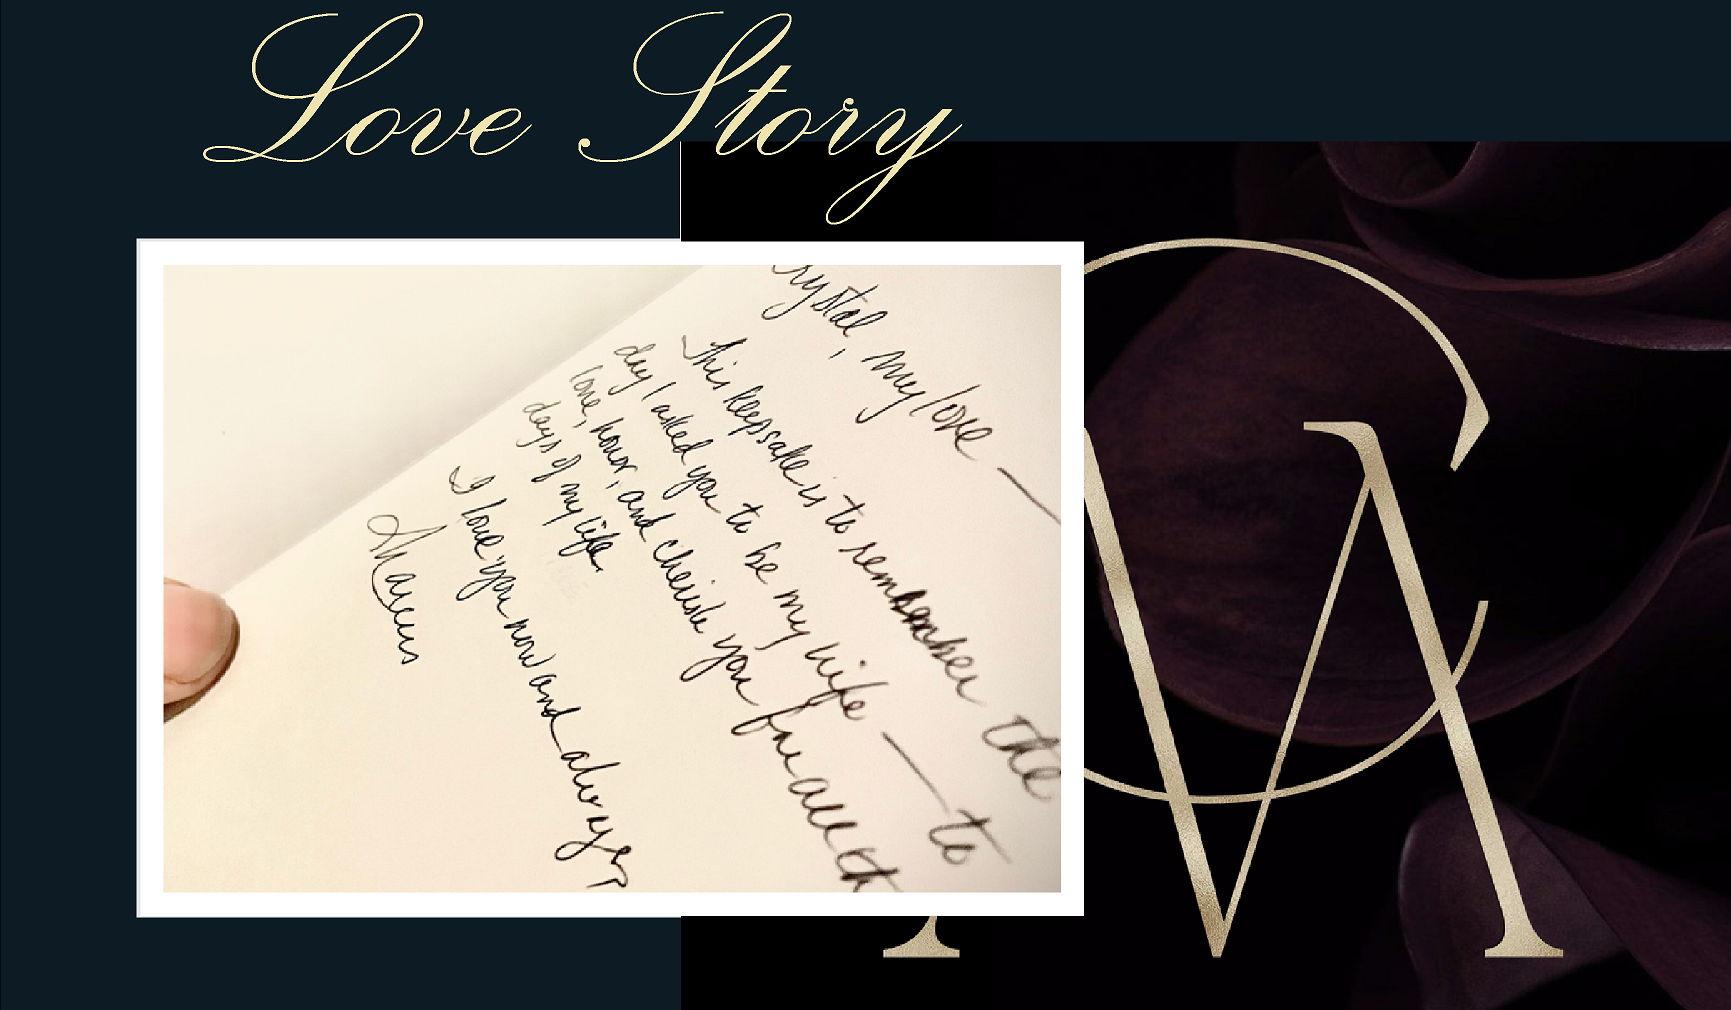 Love Story
rystal, my love —
This keepsake is to remember the
day I asked you to be my wife — to
love, honor, and cherish you for all th
days of my life.
I love you now and always,
Marcus